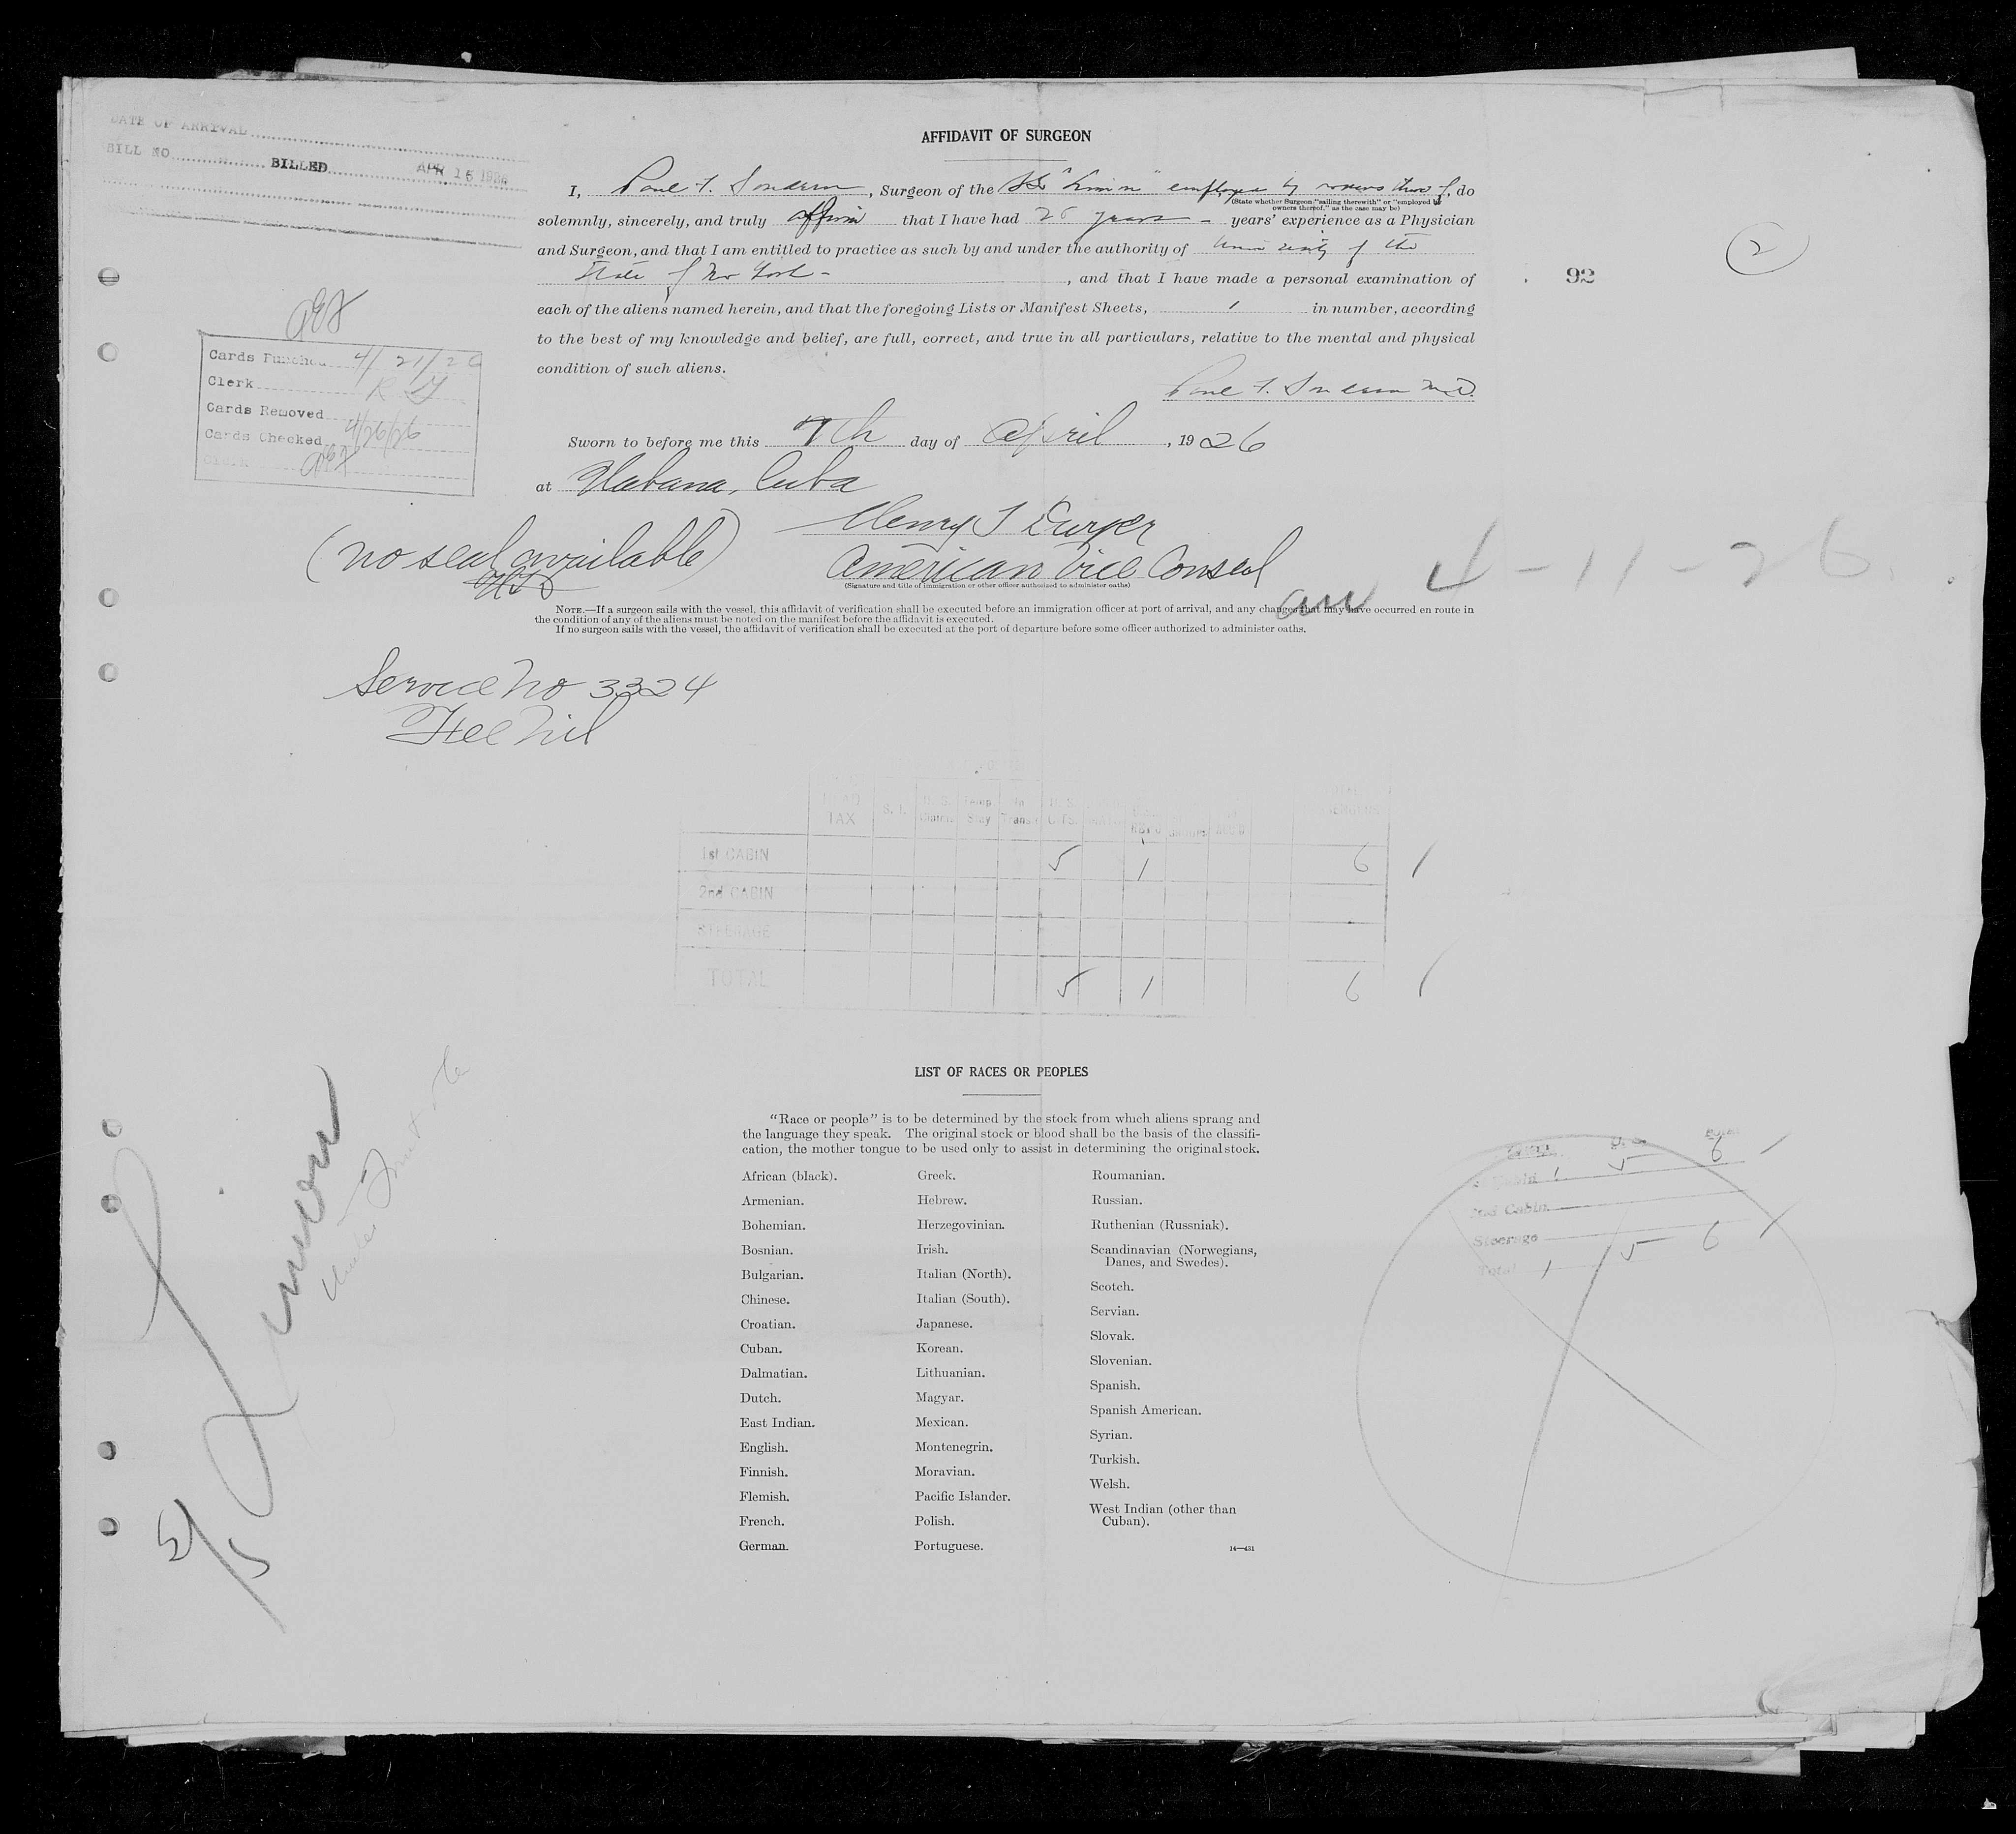 DATE OF ARRIVAL
BILL NO. BILLED APR 15 1926
AFFIDAVIT OF SURGEON
I, Paul F. , Surgeon of the SS "Limon" employed by owners thereof, do
(State whether Surgeon "sailing therewith" or "employed by
owners thereof," as the case may be)
solemnly, sincerely, and truly affirm that I have had years years' experience as a Physician
and Surgeon, and that I am entitled to practice as such by and under the authority of University of the
State of New York - , and that I have made a personal examination of
92
2
each of the aliens named herein, and that the foregoing Lists or Manifest Sheets, 1 in number, according
to the best of my knowledge and belief, are full, correct, and true in all particulars, relative to the mental and physical
condition of such aliens.
Paul F. M.D.
Cards Punched 4/21/26
Clerk
Cards Removed
Cards Checked 4/26/26
Clerk
Sworn to before me this 7th day of April, 1926
at Habana, Cuba
(no seal available)
Henry T
American Vice Consul
(Signature and title of immigration or other officer authorized to administer oaths)
4-11-26
NOTE.—If a surgeon sails with the vessel, this affidavit of verification shall be executed before an immigration officer at port of arrival, and any changes that may have occurred en route in
the condition of any of the aliens must be noted on the manifest before the affidavit is executed.
If no surgeon sails with the vessel, the affidavit of verification shall be executed at the port of departure before some officer authorized to administer oaths.
Service No 3324
Fee Nil
TAX S. I. Temp. Stay In Trans. U. S. CITS.
1st CABIN 5 1 6 1
2nd CABIN
STEERAGE
TOTAL 5 1 6 1
Limon
United Fruit Co
LIST OF RACES OR PEOPLES
"Race or people" is to be determined by the stock from which aliens sprang and
the language they speak. The original stock or blood shall be the basis of the classifi-
cation, the mother tongue to be used only to assist in determining the original stock.
African (black).
Armenian.
Bohemian.
Bosnian.
Bulgarian.
Chinese.
Croatian.
Cuban.
Dalmatian.
Dutch.
East Indian.
English.
Finnish.
Flemish.
French.
German.
Greek.
Hebrew.
Herzegovinian.
Irish.
Italian (North).
Italian (South).
Japanese.
Korean.
Lithuanian.
Magyar.
Mexican.
Montenegrin.
Moravian.
Pacific Islander.
Polish.
Portuguese.
Roumanian.
Russian.
Ruthenian (Russniak).
Scandinavian (Norwegians,
Danes, and Swedes).
Scotch.
Servian.
Slovak.
Slovenian.
Spanish.
Spanish American.
Syrian.
Turkish.
Welsh.
West Indian (other than
Cuban).
14—431
1 5 6
2nd Cabin
Steerage
Total 1 5 6